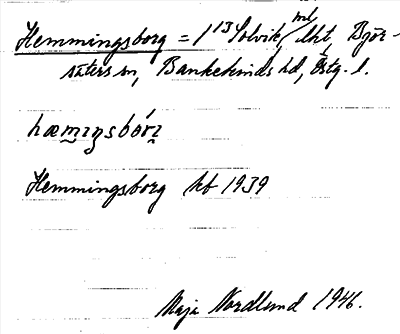 Hemmingsborg = 1¹³ Solvik, ml, lht, Björ-
säters sn, Bankekinds hd, Östg. l.
hæmıŋsbórı
Hemmingsborg hb 1939
Maja Nordlund 1946.